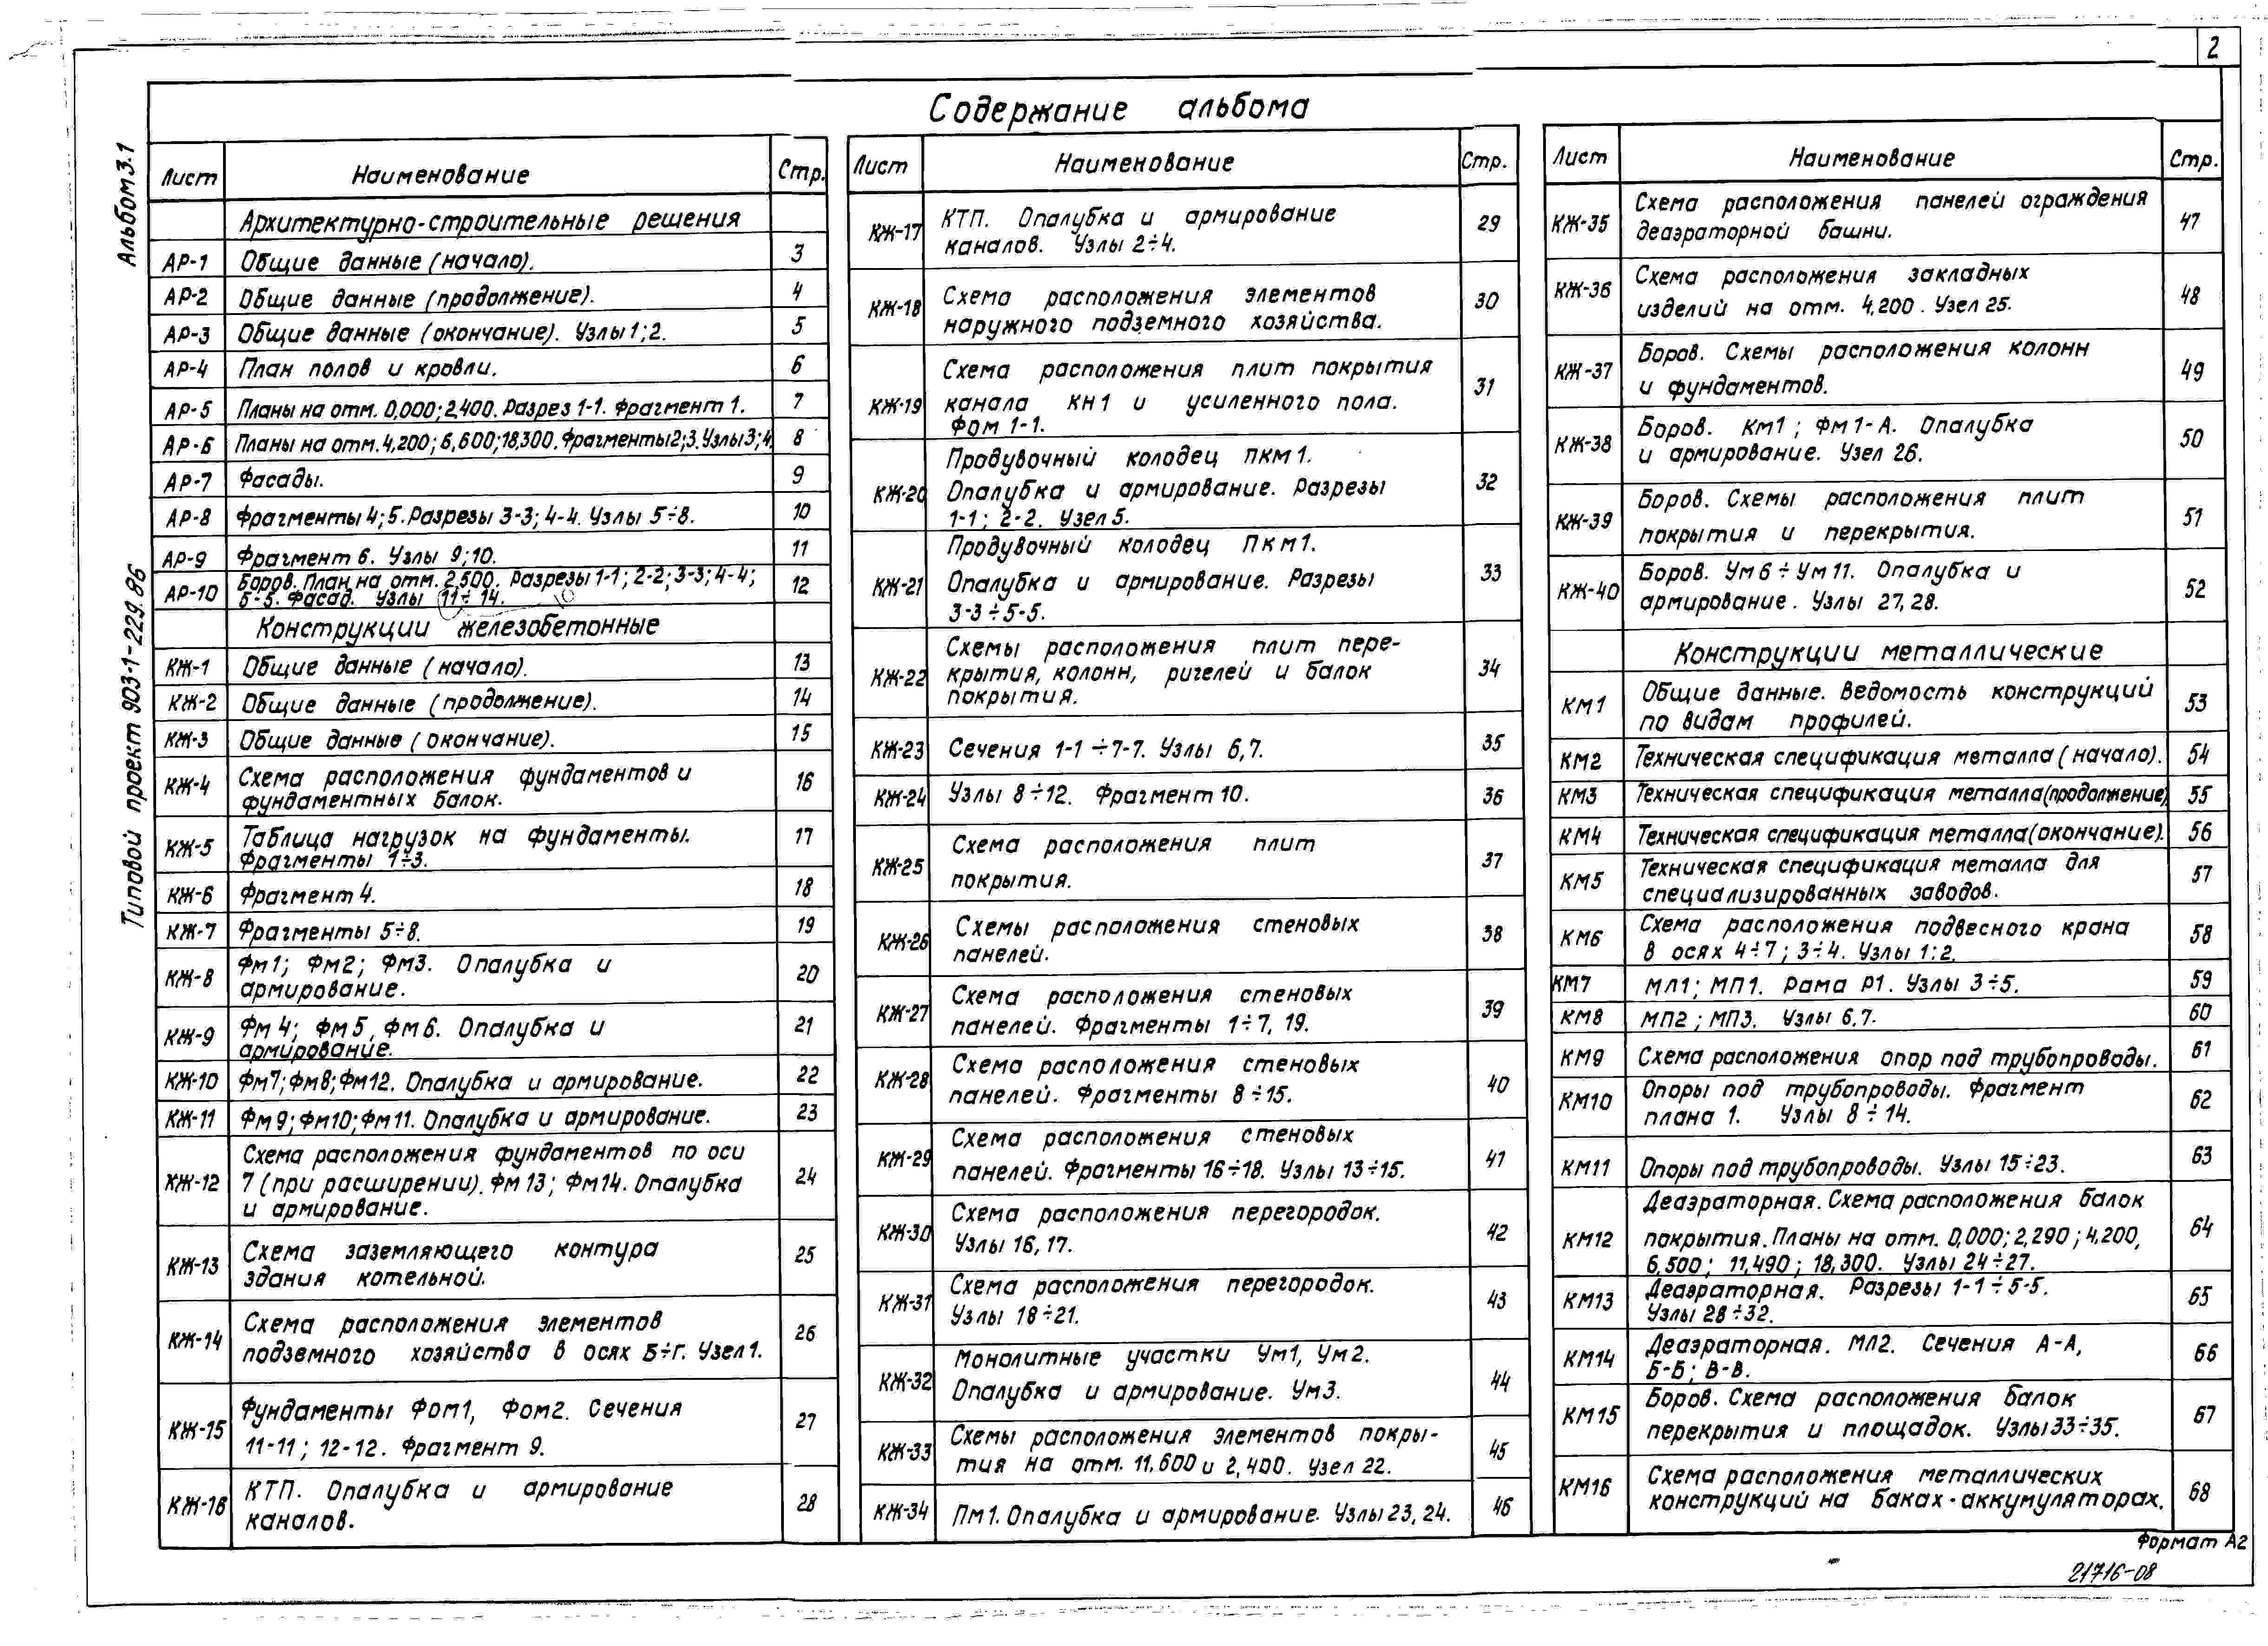 2
Содержание альбома
Альбом 3.1
Типовой проект 903-1-229.86
Лист Наименование Стр.
Архитектурно-строительные решения
АР-1 Общие данные (начало). 3
АР-2 Общие данные (продолжение). 4
АР-3 Общие данные (окончание). Узлы 1;2. 5
АР-4 План полов и кровли. 6
АР-5 Планы на отм. 0,000; 2,400. Разрез 1-1. Фрагмент 1. 7
АР-6 Планы на отм. 4,200; 6,600; 18,300. Фрагменты 2;3. Узлы 3;4 8
АР-7 Фасады. 9
АР-8 Фрагменты 4;5. Разрезы 3-3; 4-4. Узлы 5÷8. 10
АР-9 Фрагмент 6. Узлы 9;10. 11
АР-10 Боров. План на отм. 2,500. Разрезы 1-1; 2-2; 3-3; 4-4; 12
5-5. Фасад. Узлы 11÷14.
10
Конструкции железобетонные
КЖ-1 Общие данные (начало). 13
КЖ-2 Общие данные (продолжение). 14
КЖ-3 Общие данные (окончание). 15
КЖ-4 Схема расположения фундаментов и 16
фундаментных балок.
КЖ-5 Таблица нагрузок на фундаменты. 17
Фрагменты 1÷3.
КЖ-6 Фрагмент 4. 18
КЖ-7 Фрагменты 5÷8. 19
КЖ-8 Фм1; Фм2; Фм3. Опалубка и 20
армирование.
КЖ-9 Фм4; Фм5, Фм6. Опалубка и 21
армирование.
КЖ-10 Фм7; Фм8; Фм12. Опалубка и армирование. 22
КЖ-11 Фм9; Фм10; Фм11. Опалубка и армирование. 23
КЖ-12 Схема расположения фундаментов по оси 24
7 (при расширении). Фм13; Фм14. Опалубка
и армирование.
КЖ-13 Схема заземляющего контура 25
здания котельной.
КЖ-14 Схема расположения элементов 26
подземного хозяйства в осях Б÷Г. Узел 1.
КЖ-15 Фундаменты Фом1, Фом2. Сечения 27
11-11; 12-12. Фрагмент 9.
КЖ-16 КТП. Опалубка и армирование 28
каналов.
Лист Наименование Стр.
КЖ-17 КТП. Опалубка и армирование 29
каналов. Узлы 2÷4.
КЖ-18 Схема расположения элементов 30
наружного подземного хозяйства.
КЖ-19 Схема расположения плит покрытия 31
канала КН1 и усиленного пола.
Фом 1-1.
КЖ-20 Продувочный колодец ПКм1. 32
Опалубка и армирование. Разрезы
1-1; 2-2. Узел 5.
КЖ-21 Продувочный колодец ПКм1. 33
Опалубка и армирование. Разрезы
3-3÷5-5.
КЖ-22 Схемы расположения плит пере- 34
крытия, колонн, ригелей и балок
покрытия.
КЖ-23 Сечения 1-1÷7-7. Узлы 6,7. 35
КЖ-24 Узлы 8÷12. Фрагмент 10. 36
КЖ-25 Схема расположения плит 37
покрытия.
КЖ-26 Схемы расположения стеновых 38
панелей.
КЖ-27 Схема расположения стеновых 39
панелей. Фрагменты 1÷7, 19.
КЖ-28 Схема расположения стеновых 40
панелей. Фрагменты 8÷15.
КЖ-29 Схема расположения стеновых 41
панелей. Фрагменты 16÷18. Узлы 13÷15.
КЖ-30 Схема расположения перегородок. 42
Узлы 16, 17.
КЖ-31 Схема расположения перегородок. 43
Узлы 18÷21.
КЖ-32 Монолитные участки Ум1, Ум2. 44
Опалубка и армирование. Ум3.
КЖ-33 Схемы расположения элементов покры- 45
тия на отм. 11,600 и 2,400. Узел 22.
КЖ-34 Пм1. Опалубка и армирование. Узлы 23, 24. 46
Лист Наименование Стр.
КЖ-35 Схема расположения панелей ограждения 47
деаэраторной башни.
КЖ-36 Схема расположения закладных 48
изделий на отм. 4,200. Узел 25.
КЖ-37 Боров. Схемы расположения колонн 49
и фундаментов.
КЖ-38 Боров. Км1; Фм1-А. Опалубка 50
и армирование. Узел 26.
КЖ-39 Боров. Схемы расположения плит 51
покрытия и перекрытия.
КЖ-40 Боров. Ум6÷Ум11. Опалубка и 52
армирование. Узлы 27, 28.
Конструкции металлические
КМ1 Общие данные. Ведомость конструкций 53
по видам профилей.
КМ2 Техническая спецификация металла (начало). 54
КМ3 Техническая спецификация металла (продолжение) 55
КМ4 Техническая спецификация металла (окончание). 56
КМ5 Техническая спецификация металла для 57
специализированных заводов.
КМ6 Схема расположения подвесного крана 58
в осях 4÷7; 3÷4. Узлы 1:2.
КМ7 МЛ1; МП1. Рама Р1. Узлы 3÷5. 59
КМ8 МП2; МП3. Узлы 6,7. 60
КМ9 Схема расположения опор под трубопроводы. 61
КМ10 Опоры под трубопроводы. Фрагмент 62
плана 1. Узлы 8÷14.
КМ11 Опоры под трубопроводы. Узлы 15÷23. 63
КМ12 Деаэраторная. Схема расположения балок 64
покрытия. Планы на отм. 0,000; 2,290; 4,200,
6,500; 11,490; 18,300. Узлы 24÷27.
КМ13 Деаэраторная. Разрезы 1-1÷5-5. 65
Узлы 28÷32.
КМ14 Деаэраторная. МЛ2. Сечения А-А, 66
Б-Б; В-В.
КМ15 Боров. Схема расположения балок 67
перекрытия и площадок. Узлы 33÷35.
КМ16 Схема расположения металлических 68
конструкций на баках-аккумуляторах.
Формат А2
21716-08